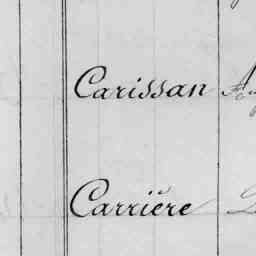 Carissan
Carrière